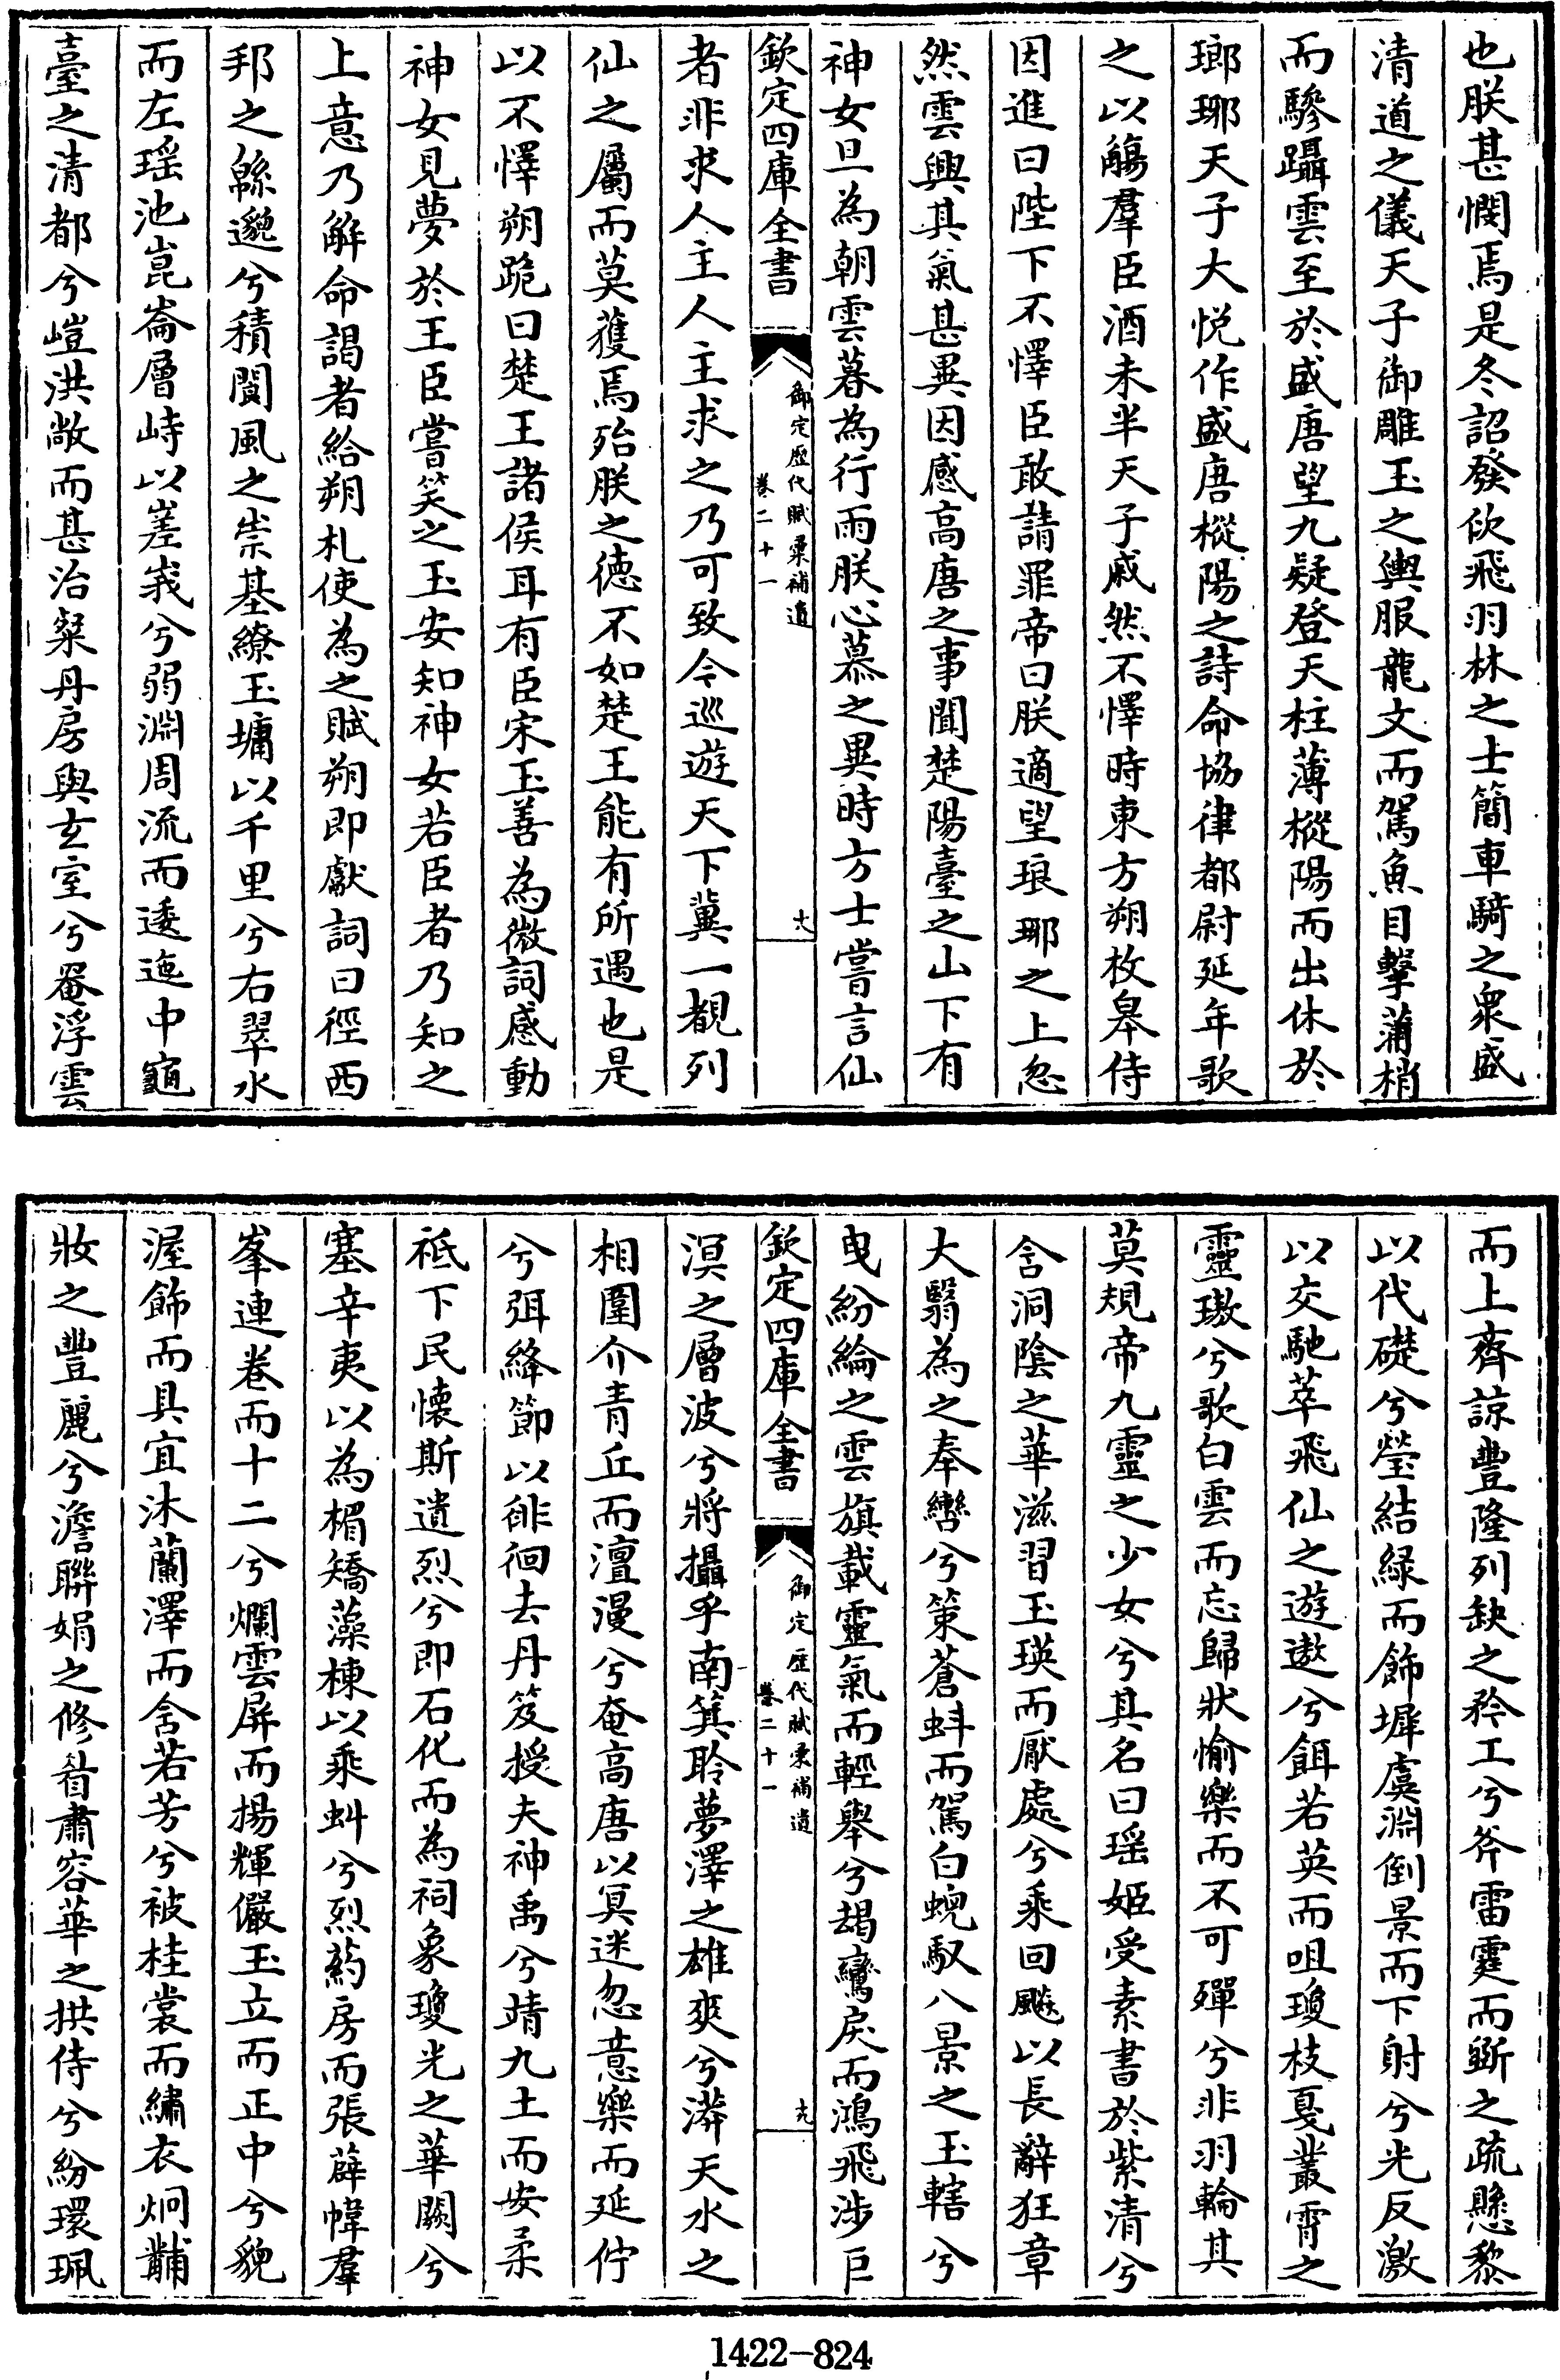 也朕甚憫焉是冬詔發佽飛羽林之士簡車騎之衆盛
清道之儀天子御雕玉之輿服龍文而駕魚目擊蒲梢
而驂躡雲至於盛唐望九疑登天柱薄樅陽而出休於
瑯琊天子大悅作盛唐樅陽之詩命協律都尉延年歌
之以觴羣臣酒未半天子戚然不懌時東方朔枚皋侍
因進曰陛下不懌臣敢請罪帝曰朕適望琅耶之上忽
然雲興其氣甚異因感高唐之事聞楚陽臺之山下有
神女旦為朝雲暮為行雨朕心慕之異時方士嘗言仙
欽定四庫全書
御定歷代賦彙補遺
卷二十一
十八
者非求人主人主求之乃可致今巡遊天下冀一覩列
仙之屬而莫獲焉殆朕之德不如楚王能有所遇也是
以不懌朔跪曰楚王諸侯耳有臣宋玉善為微詞感動
神女見夢於王臣嘗笑之玉安知神女若臣者乃知之
上意乃解命謁者給朔札使為之賦朔即獻詞曰徑西
邦之緜邈兮積閬風之崇基繚玉墉以千里兮右翠水
而左瑶池崑崙層峙以嵳峩兮弱淵周流而逶迤中龜
臺之清都兮嵦洪敞而甚治粲丹房與玄室兮罨浮雲
而上齊諒豐隆列缺之矜工兮斧雷霆而斲之疏懸黎
以代礎兮瑩結緑而飾墀虞淵倒景而下射兮光反激
以交馳萃飛仙之遊遨兮餌若英而咀瓊枝戛叢霄之
靈璈兮歌白雲而忘歸狀愉樂而不可殫兮非羽輪其
莫規帝九靈之少女兮其名曰瑶姬受素書於紫清兮
含洞陰之華滋習玉瑛而厭處兮乘回飈以長辭狂章
大翳為之奉轡兮策蒼蚪而駕白蜺馭八景之玉轄兮
曳紛綸之雲旗載靈氣而輕舉兮朅鸞戾而鴻飛涉巨
欽定四庫全書
御定歷代賦彙補遺
卷二十一
十九
溟之層波兮將攝乎南箕聆夢澤之雄爽兮漭天水之
相圍介青丘而澶漫兮奄高唐以冥迷忽意樂而延佇
兮弭絳節以徘徊去丹笈授夫神禹兮靖九土而安柔
祗下民懷斯遺烈兮即石化而為祠象瓊光之華闕兮
塞辛夷以為楣矯藻棟以乘蚪兮烈葯房而張薜幃羣
峯連卷而十二兮爛雲屏而揚輝儼玉立而正中兮貌
渥飾而具宜沐蘭澤而含若芳兮被桂裳而繡衣炯黼
妝之豐麗兮澹聨娟之修眉肅容華之拱侍兮紛環珮
1422-824